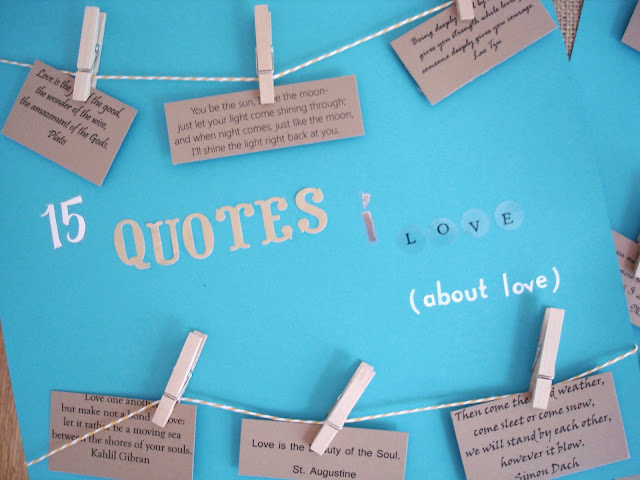 Love is the of the good,
the wonder of the wise,
the amazement of the Gods.
Plato
You be the sun, the moon-
just let your light come shining through;
and when night comes, just like the moon,
I'll shine the light right back at you.
Being deeply by
gives you strength while love
someone deeply gives you courage.
Lao Tzu
15 QUOTES i LOVE
(about love)
Love one
but make not a bond love:
let it rather be a moving sea
between the shores of your souls.
Kahlil Gibran
Love is the of the Soul.
St. Augustine
Then come the weather,
come sleet or come snow,
we will stand by each other,
however it blow.
Simon Dach